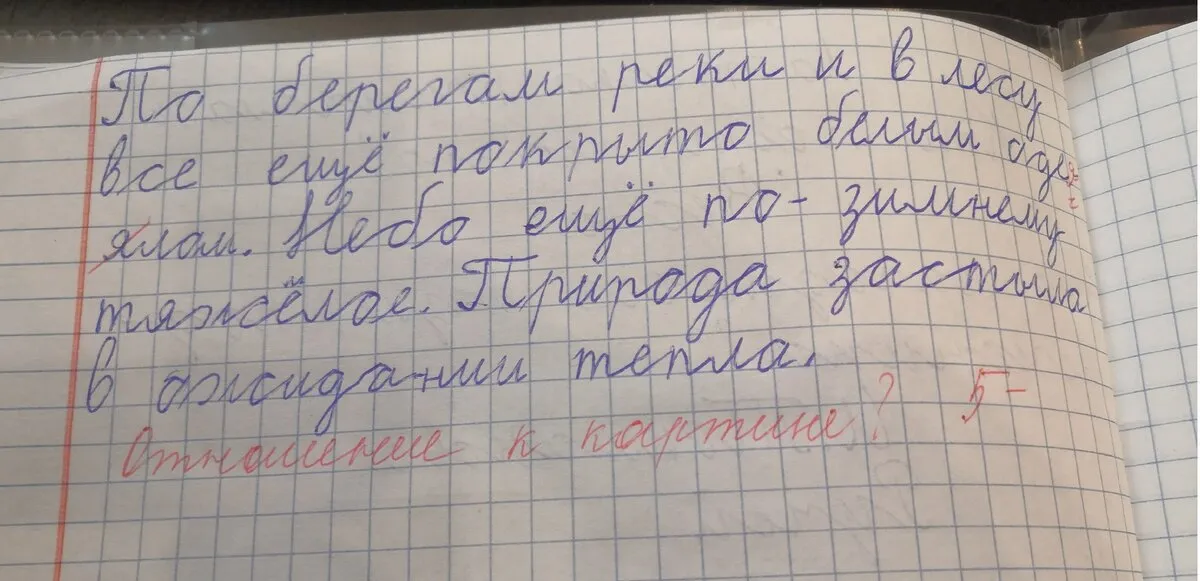 По берегам реки и в лесу
все ещё покрыто белым оде-
ялом. Небо ещё по-зимнему
тяжёлое. Природа застыла
в ожидании тепла.
Отношение к картине? 5-